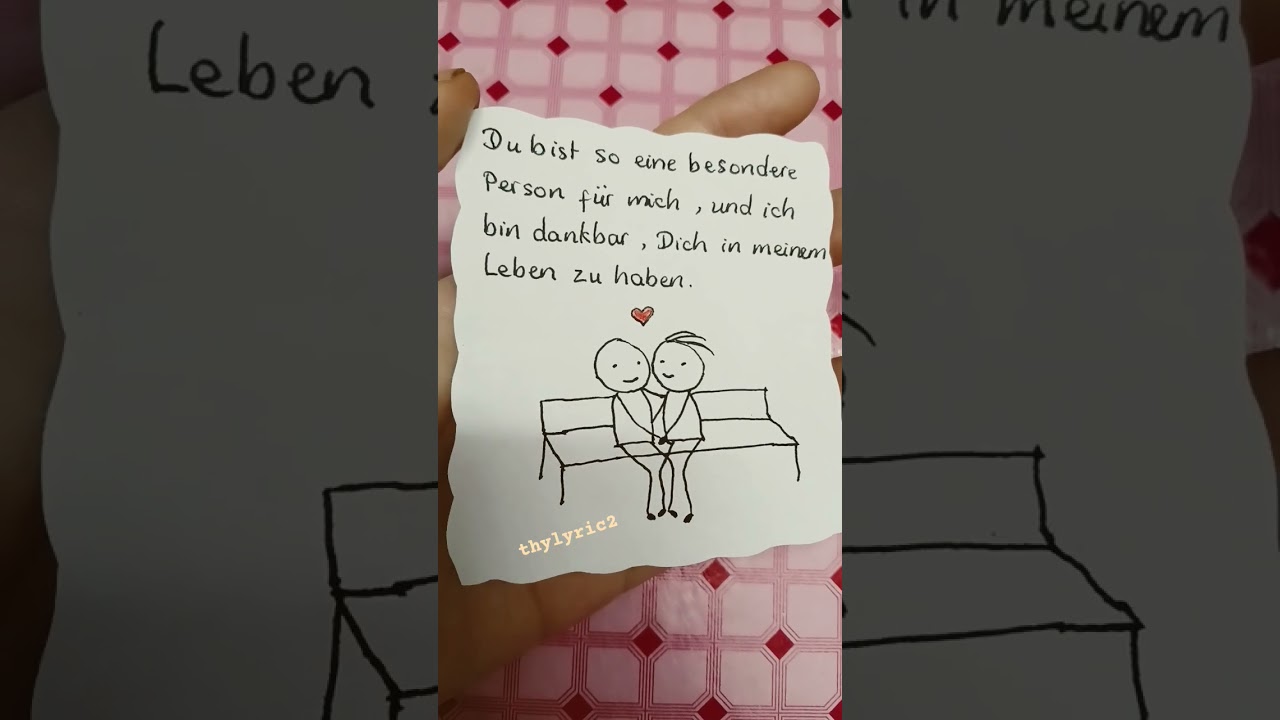 Du bist so eine besondere
Person für mich , und ich
bin dankbar , Dich in meinem
Leben zu haben.
thylyric2
Leben
in meinem